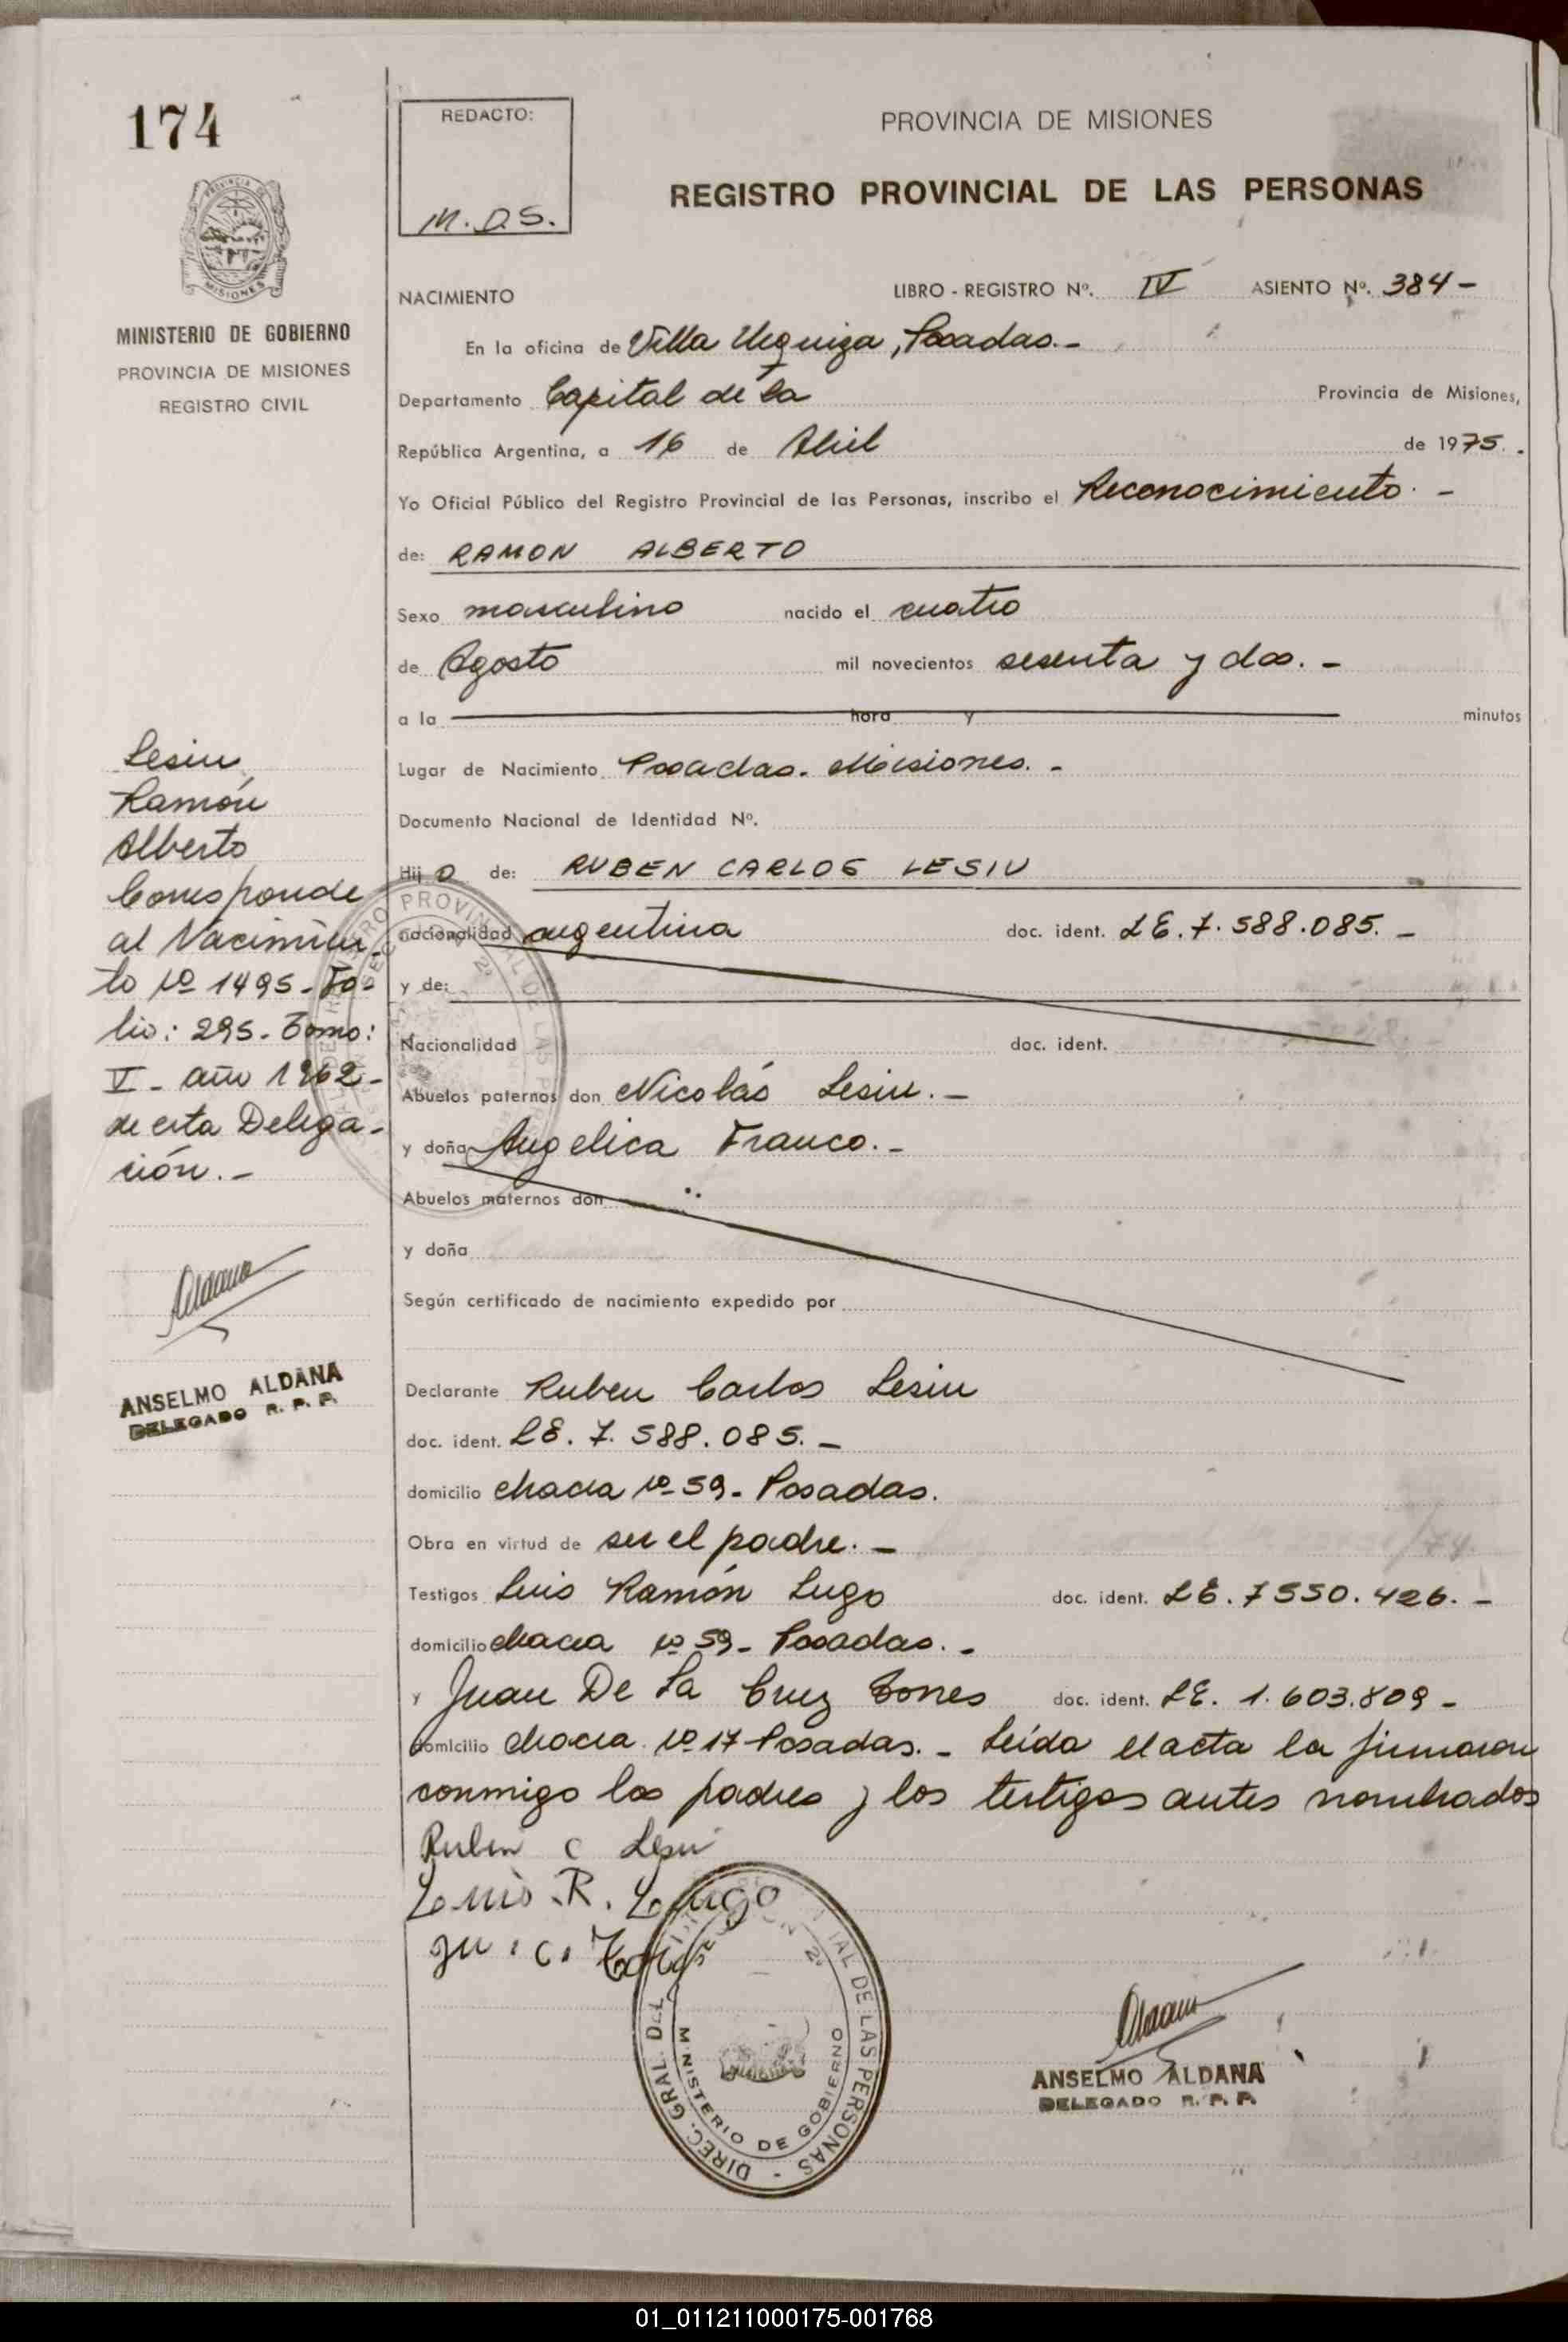 174
PROVINCIA DE
MISIONES
MINISTERIO DE GOBIERNO
PROVINCIA DE MISIONES
REGISTRO CIVIL
REDACTO:
M.D.S.
PROVINCIA DE MISIONES
REGISTRO PROVINCIAL DE LAS PERSONAS
NACIMIENTO LIBRO - REGISTRO Nº. IV ASIENTO Nº. 384 -
En la oficina de Villa Urquiza, Posadas.-
Departamento Capital de la Provincia de Misiones,
República Argentina, a 16 de Abril de 1975.
Yo Oficial Público del Registro Provincial de las Personas, inscribo el Reconocimiento. -
de: RAMON ALBERTO
Sexo masculino nacido el cuatro
de Agosto mil novecientos sesenta y dos. -
a la hora y minutos
Lugar de Nacimiento Posadas. Misiones. -
Documento Nacional de Identidad Nº.
Hij o de: RUBEN CARLOS LESIU
nacionalidad argentina doc. ident. LE. 7.588.085. -
y de:
Nacionalidad doc. ident.
Abuelos paternos don Nicolás Lesiu. -
y doña Angelica Franco. -
Abuelos maternos don
y doña
Según certificado de nacimiento expedido por
Declarante Ruben Carlos Lesiu
doc. ident. LE. 7.588.085. -
domicilio chacra Nº 59 - Posadas.
Obra en virtud de ser el padre. -
Testigos Luis Ramón Lugo doc. ident. LE. 7550.426. -
domicilio chacra Nº 59 - Posadas. -
y Juan De La Cruz Torres doc. ident. LE. 1.603.809 -
domicilio chacra Nº 17 Posadas. - Leída el acta la firmaron
conmigo los padres y los testigos antes nombrados
Ruben C Lesiu
Luis R. Lugo
Lesiu
Ramón
Alberto
Corresponde
al Nacimien
to Nº 1495 - Fo-
lio: 295 - Tomo:
V - año 1962 -
de esta Delega-
ción. -
ANSELMO ALDANA
DELEGADO R. P. P.
DIREC. GRAL. DEL IAL DE LAS PERSONAS -
MINISTERIO DE GOBIERNO
ANSELMO ALDANA
DELEGADO R. P. P.
01_011211000175-001768